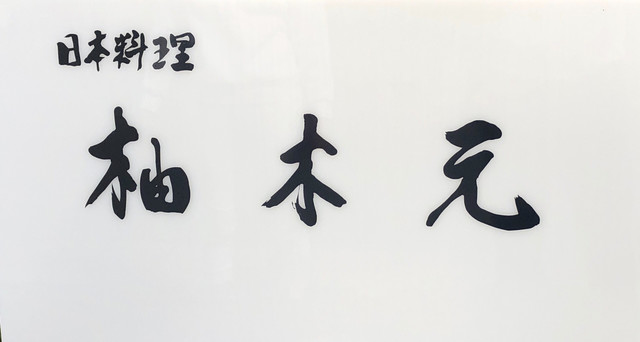 日本料理
柚木元